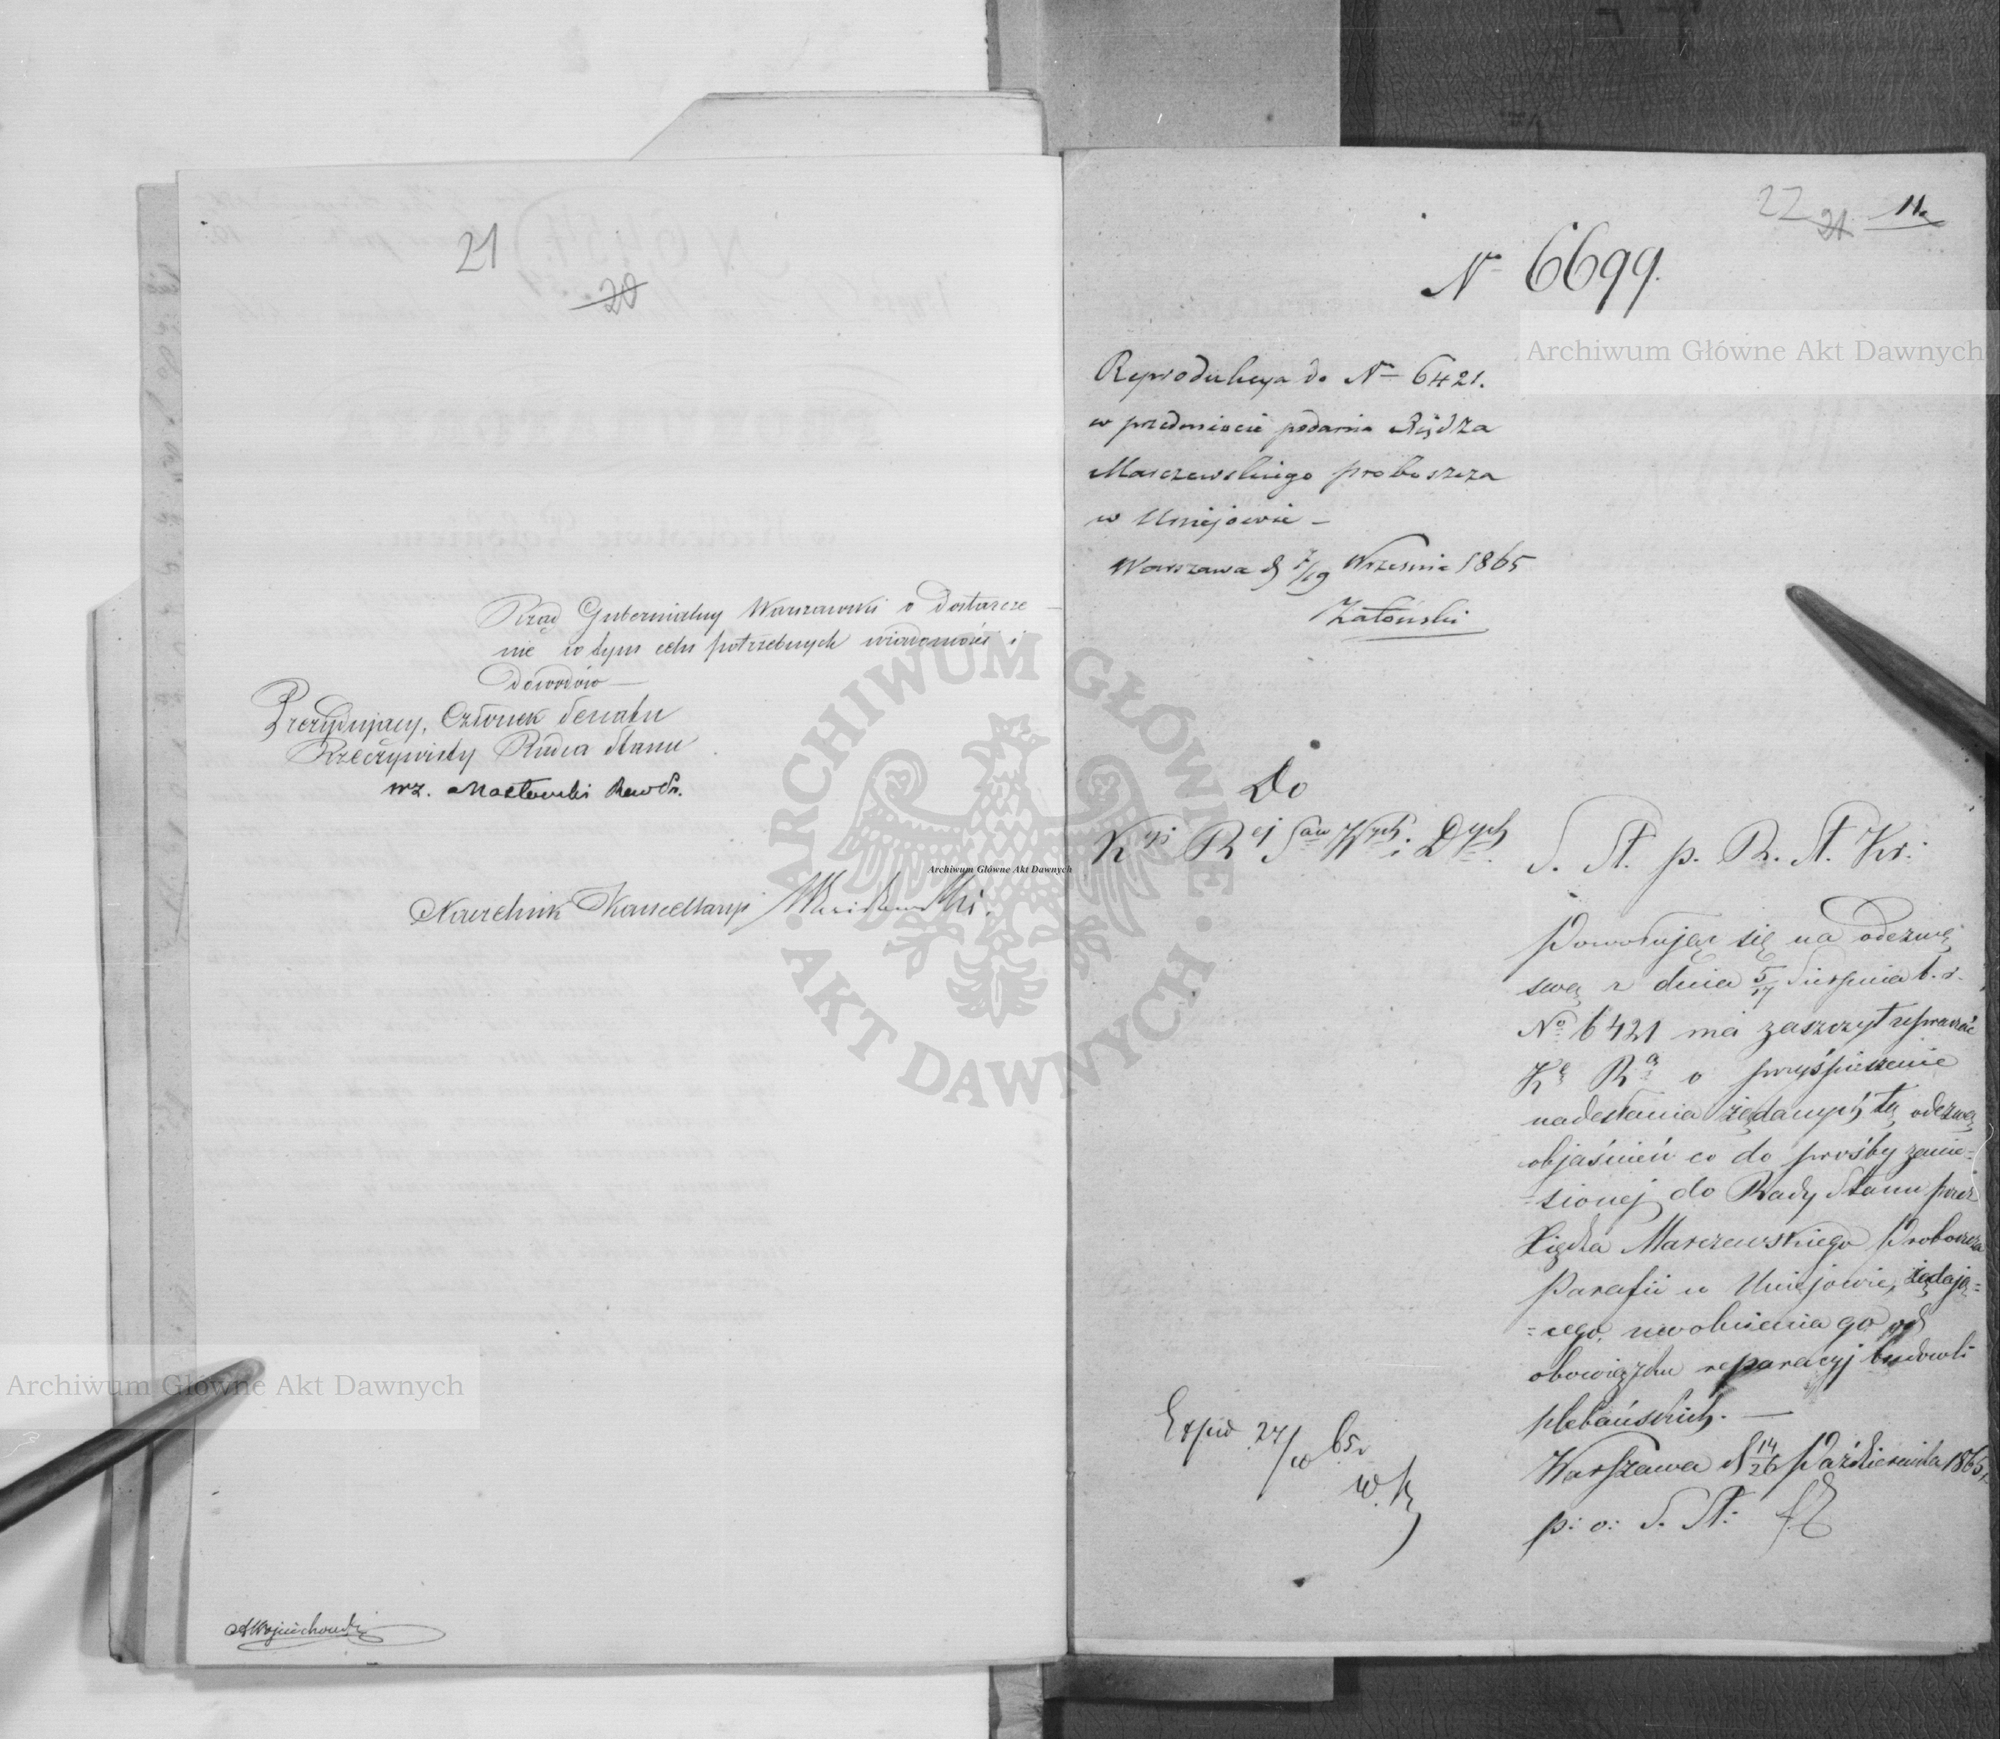 21
20
Rząd Gubernialny Warszawski o dostarcze-
nie w tym celu potrzebnych wiadomości i
dowodów —
Prezydujący, Członek Senatu
Rzeczywisty Radca Stanu
wz.
Naczelnik Kancellaryi
AWojciechowski
22 21. 11.
N 6699.
Reprodukcya do N 6421.
w przedmiocie podania Xiędza
Marczewskiego proboszcza
w Uniejowie –
Warszawa d 7/19 Września 1865
Załoński
Do
Kyi Rej Sraw Wych i Dych
S. St. p. R. St. Kr:
Powołując się na odezwę
swą z dnia 5/17 Sierpnia b. r.
No 6421 ma zaszczyt upraszać
Kę Rą o przyśpieszenie
nadesłania żądanych tą odezwą
objaśnień co do prośby zanie=
=sionej do Rady Stanu przez
Xiędza Marczewskiego Proboszcza
Parafii w Uniejowie, żądają=
=cego, uwolnienia go od
obowiązku reparacyj budowli
plebańskich. —
Warszawa d 14/26 Października 1865.
p: o: S. St:
Exped 27/10 65.
Archiwum Główne Akt Dawnych
Archiwum Główne Akt Dawnych
Archiwum Główne Akt Dawnych
· ARCHIWUM GŁÓWNE · AKT DAWNYCH